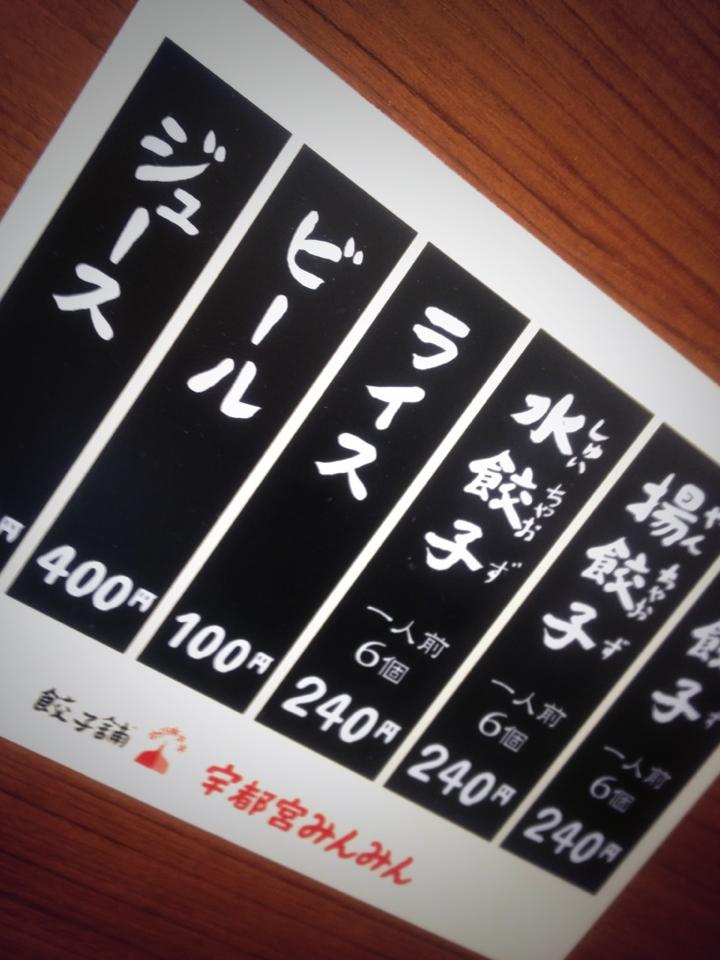 餃子
一人前
6個
240円
揚餃子
やん ちゃお ず
一人前
6個
240円
水餃子
しゅい ちゃお ず
一人前
6個
240円
ライス
100円
ビール
400円
ジュース
円
餃子舗
宇都宮みんみん